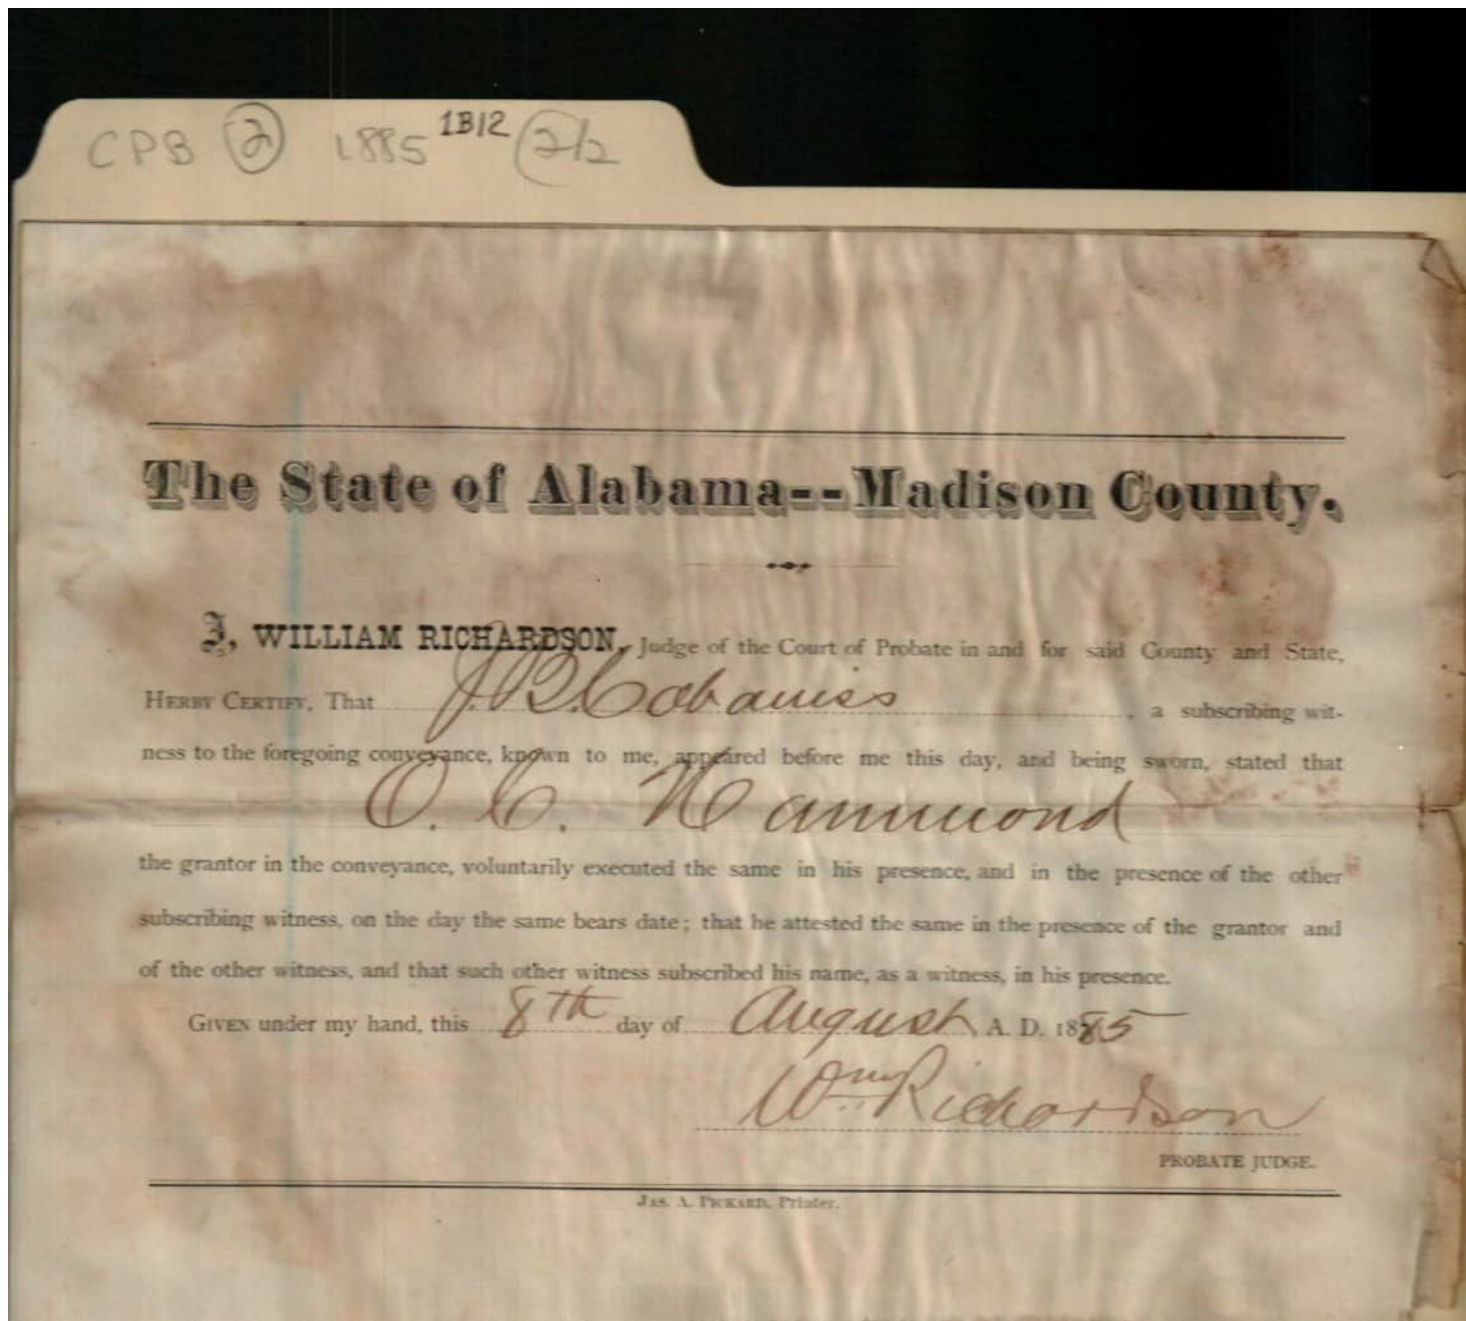 CPB 2 1885 1B12 2/2
The State of Alabama--Madison County.
I, WILLIAM RICHARDSON, Judge of the Court of Probate in and for said County and State,
HERBY CERTIFY, That J. B. Cabaniss, a subscribing wit-
ness to the foregoing conveyance, known to me, appeared before me this day, and being sworn, stated that
O. C. Hammond
the grantor in the conveyance, voluntarily executed the same in his presence, and in the presence of the other
subscribing witness, on the day the same bears date; that he attested the same in the presence of the grantor and
of the other witness, and that such other witness subscribed his name, as a witness, in his presence.
GIVEN under my hand, this 8th day of August A. D. 1885
Wm Richardson
PROBATE JUDGE.
JAS. A. PICKARD, Printer.